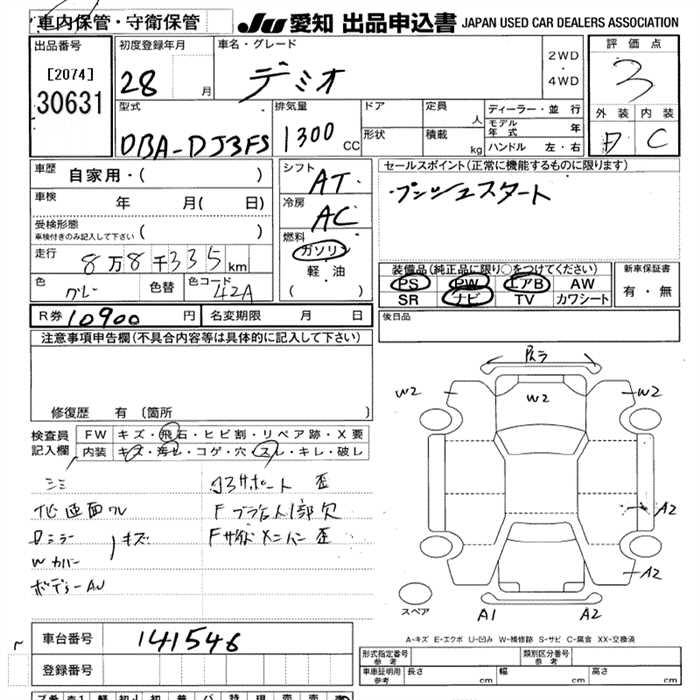 車内保管・守衛保管
JU 愛知 出品申込書 JAPAN USED CAR DEALERS ASSOCIATION
出品番号
[2074]
30631
初度登録年月
28 月
車名・グレード
デミオ
2WD
・
4WD
評価点
3
外装 内装
D C
型式
DBA-DJ3FS
排気量
1300 CC
ドア
形状
定員 人
積載 kg
ディーラー・並行
モデル年式 年
ハンドル 左・右
車歴 自家用・( )
車検 年 月( 日)
受検形態
車検付きのみ記入して下さい ( )
走行 8万8千335km
色 グレー 色替 色コード 42A
シフト AT
冷房 AC
燃料
ガソリン
軽・油
( )
セールスポイント(正常に機能するものに限ります)
プッシュスタート
装備品(純正品に限り○をつけてください)
PS PW エアB AW
SR ナビ TV カワシート
新車保証書
有・無
R券 10900 円 名変期限 月 日
後日品
注意事項申告欄(不具合内容等は具体的に記入して下さい)
修復歴 有 [箇所 ]
検査員
記入欄
FW キズ・飛石・ヒビ割・リペア跡・X要
内装 キズ・汚レ・コゲ・穴・スレ・キレ・破レ
シミ
Dミラー
Wカバー
キズ
歪
Fサイドメンバー 歪
W2 W2 W2
A2
A2
A1 A2
スペア
A-キズ E-エクボ U-凹み W-補修跡 S-サビ C-腐食 XX-交換済
車台番号 141546
登録番号
形式指定番号
参考
類別区分番号
参考
車庫証明用
参考
長さ cm 幅 cm 高さ cm